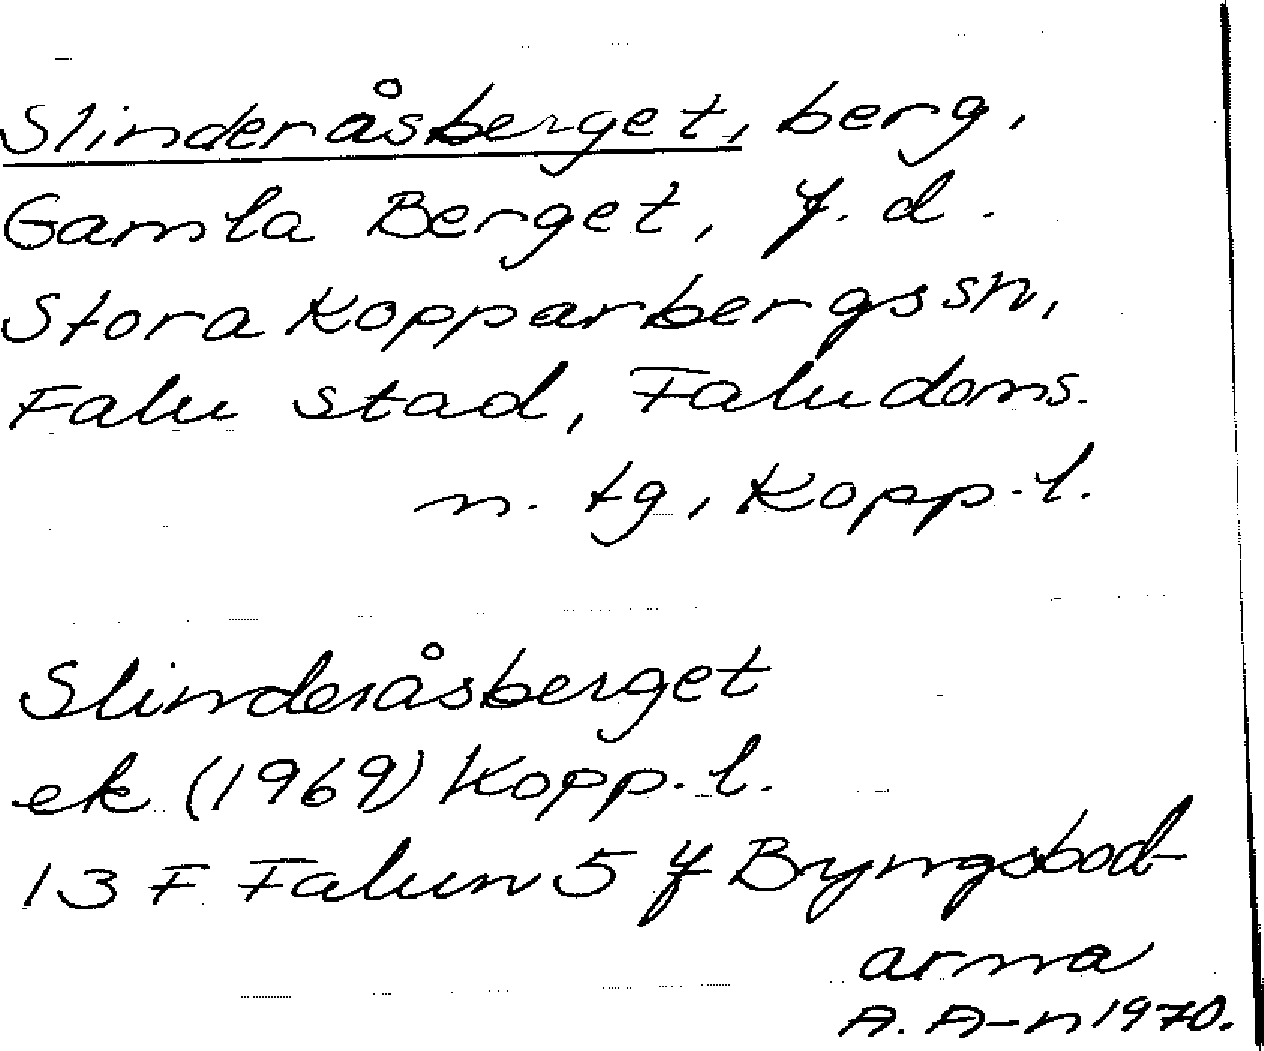 Slinderåsberget, berg,
Gamla Berget, f.d.
Stora Kopparbergs sn,
Falu stad, Falu doms.
n. tg, Kopp. l.
Slinderåsberget
ek (1969) Kopp. l.
13 F Falun 5 f Bryngsbod-
arna
A. A-n 1970.